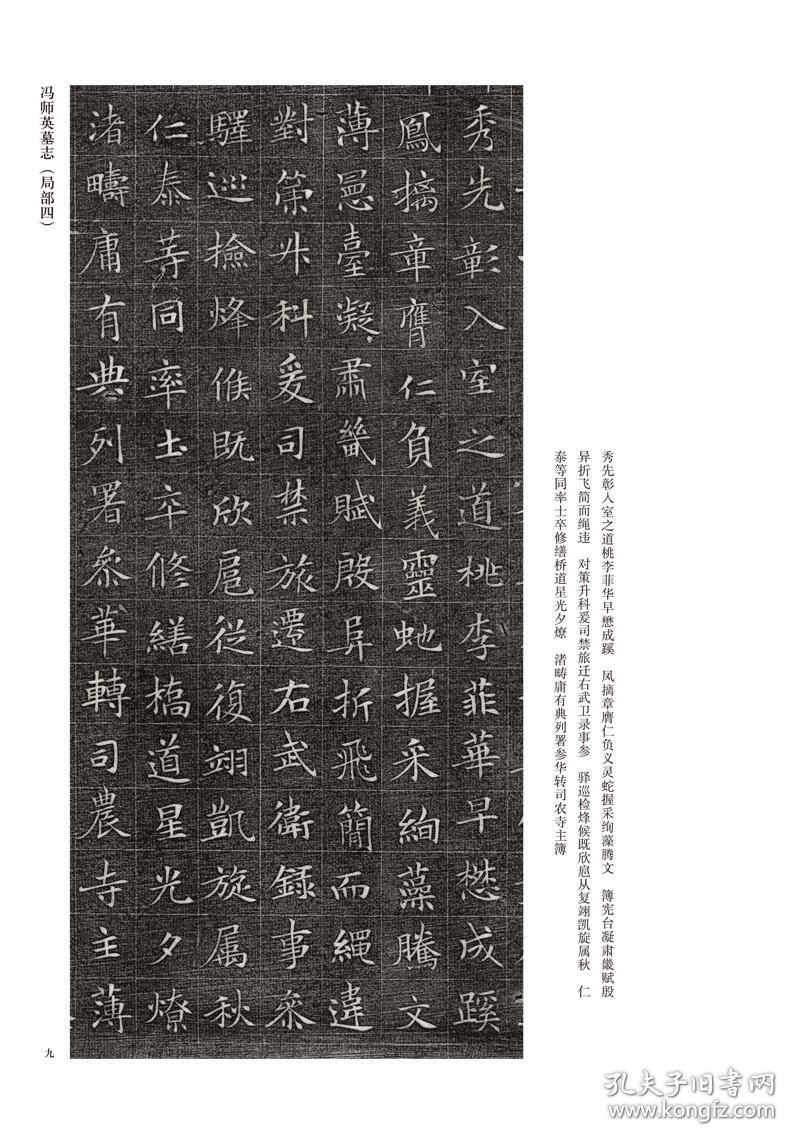 冯师英墓志（局部四）
秀先彰入室之道桃李菲華早懋成蹊
鳳摛章膺仁負義靈虵握采絢藻騰文
薄憲臺凝肃畿賦殷异折飛蕳而繩違
對策升科爰司禁旅遷右武衛錄事叅
驛巡撿烽候既欣扈從復翊凱旋属秋
仁泰等同率士卒修繕橋道星光夕燎
渚疇庸有典列署叅華轉司農寺主薄
秀先彰入室之道桃李菲华早懋成蹊　凤摛章膺仁负义灵蛇握采绚藻腾文　簿宪台凝肃畿赋殷
异折飞简而绳违　对策升科爰司禁旅迁右武卫录事参　驿巡检烽候既欣扈从复翊凯旋属秋　仁
泰等同率士卒修缮桥道星光夕燎　渚畴庸有典列署参华转司农寺主簿
九
孔夫子旧书网
www.kongfz.com